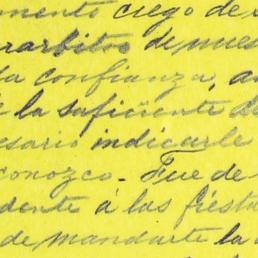 mento ciego de
rarbitro de nues
la confianza, a
e la suficiente de
esario indicarle
conozco. Fue de
dente á las fiesta
de mandarte la